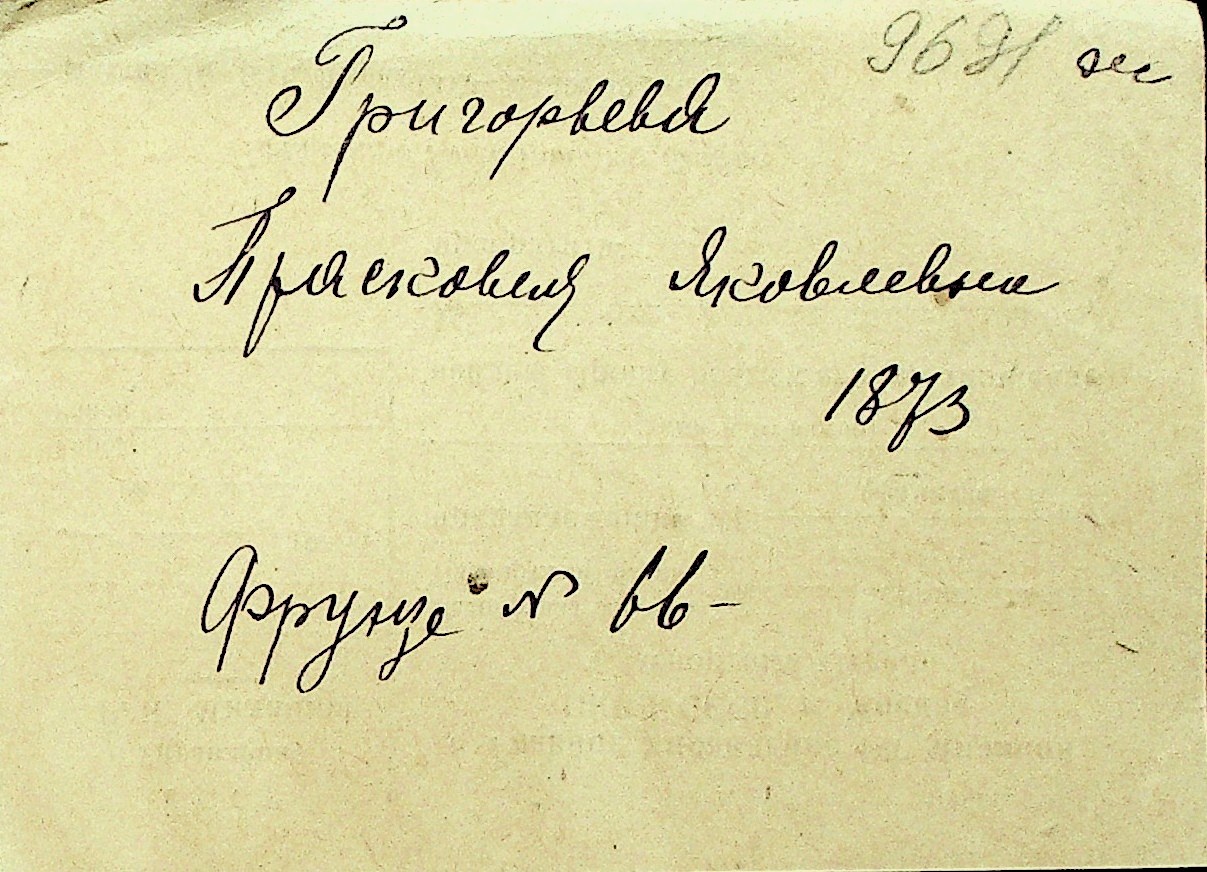 Григорьева
Прасковия Яковлевна
1873
Фрунзе № 66-